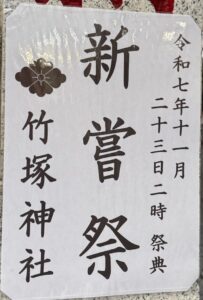 令和七年十一月
二十三日二時 祭典
新嘗祭
竹塚神社